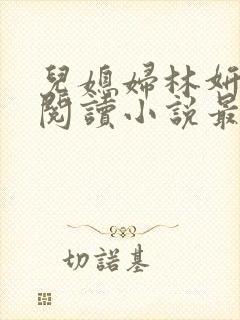 兒媳婦林妍
閱讀小說最
切諾基